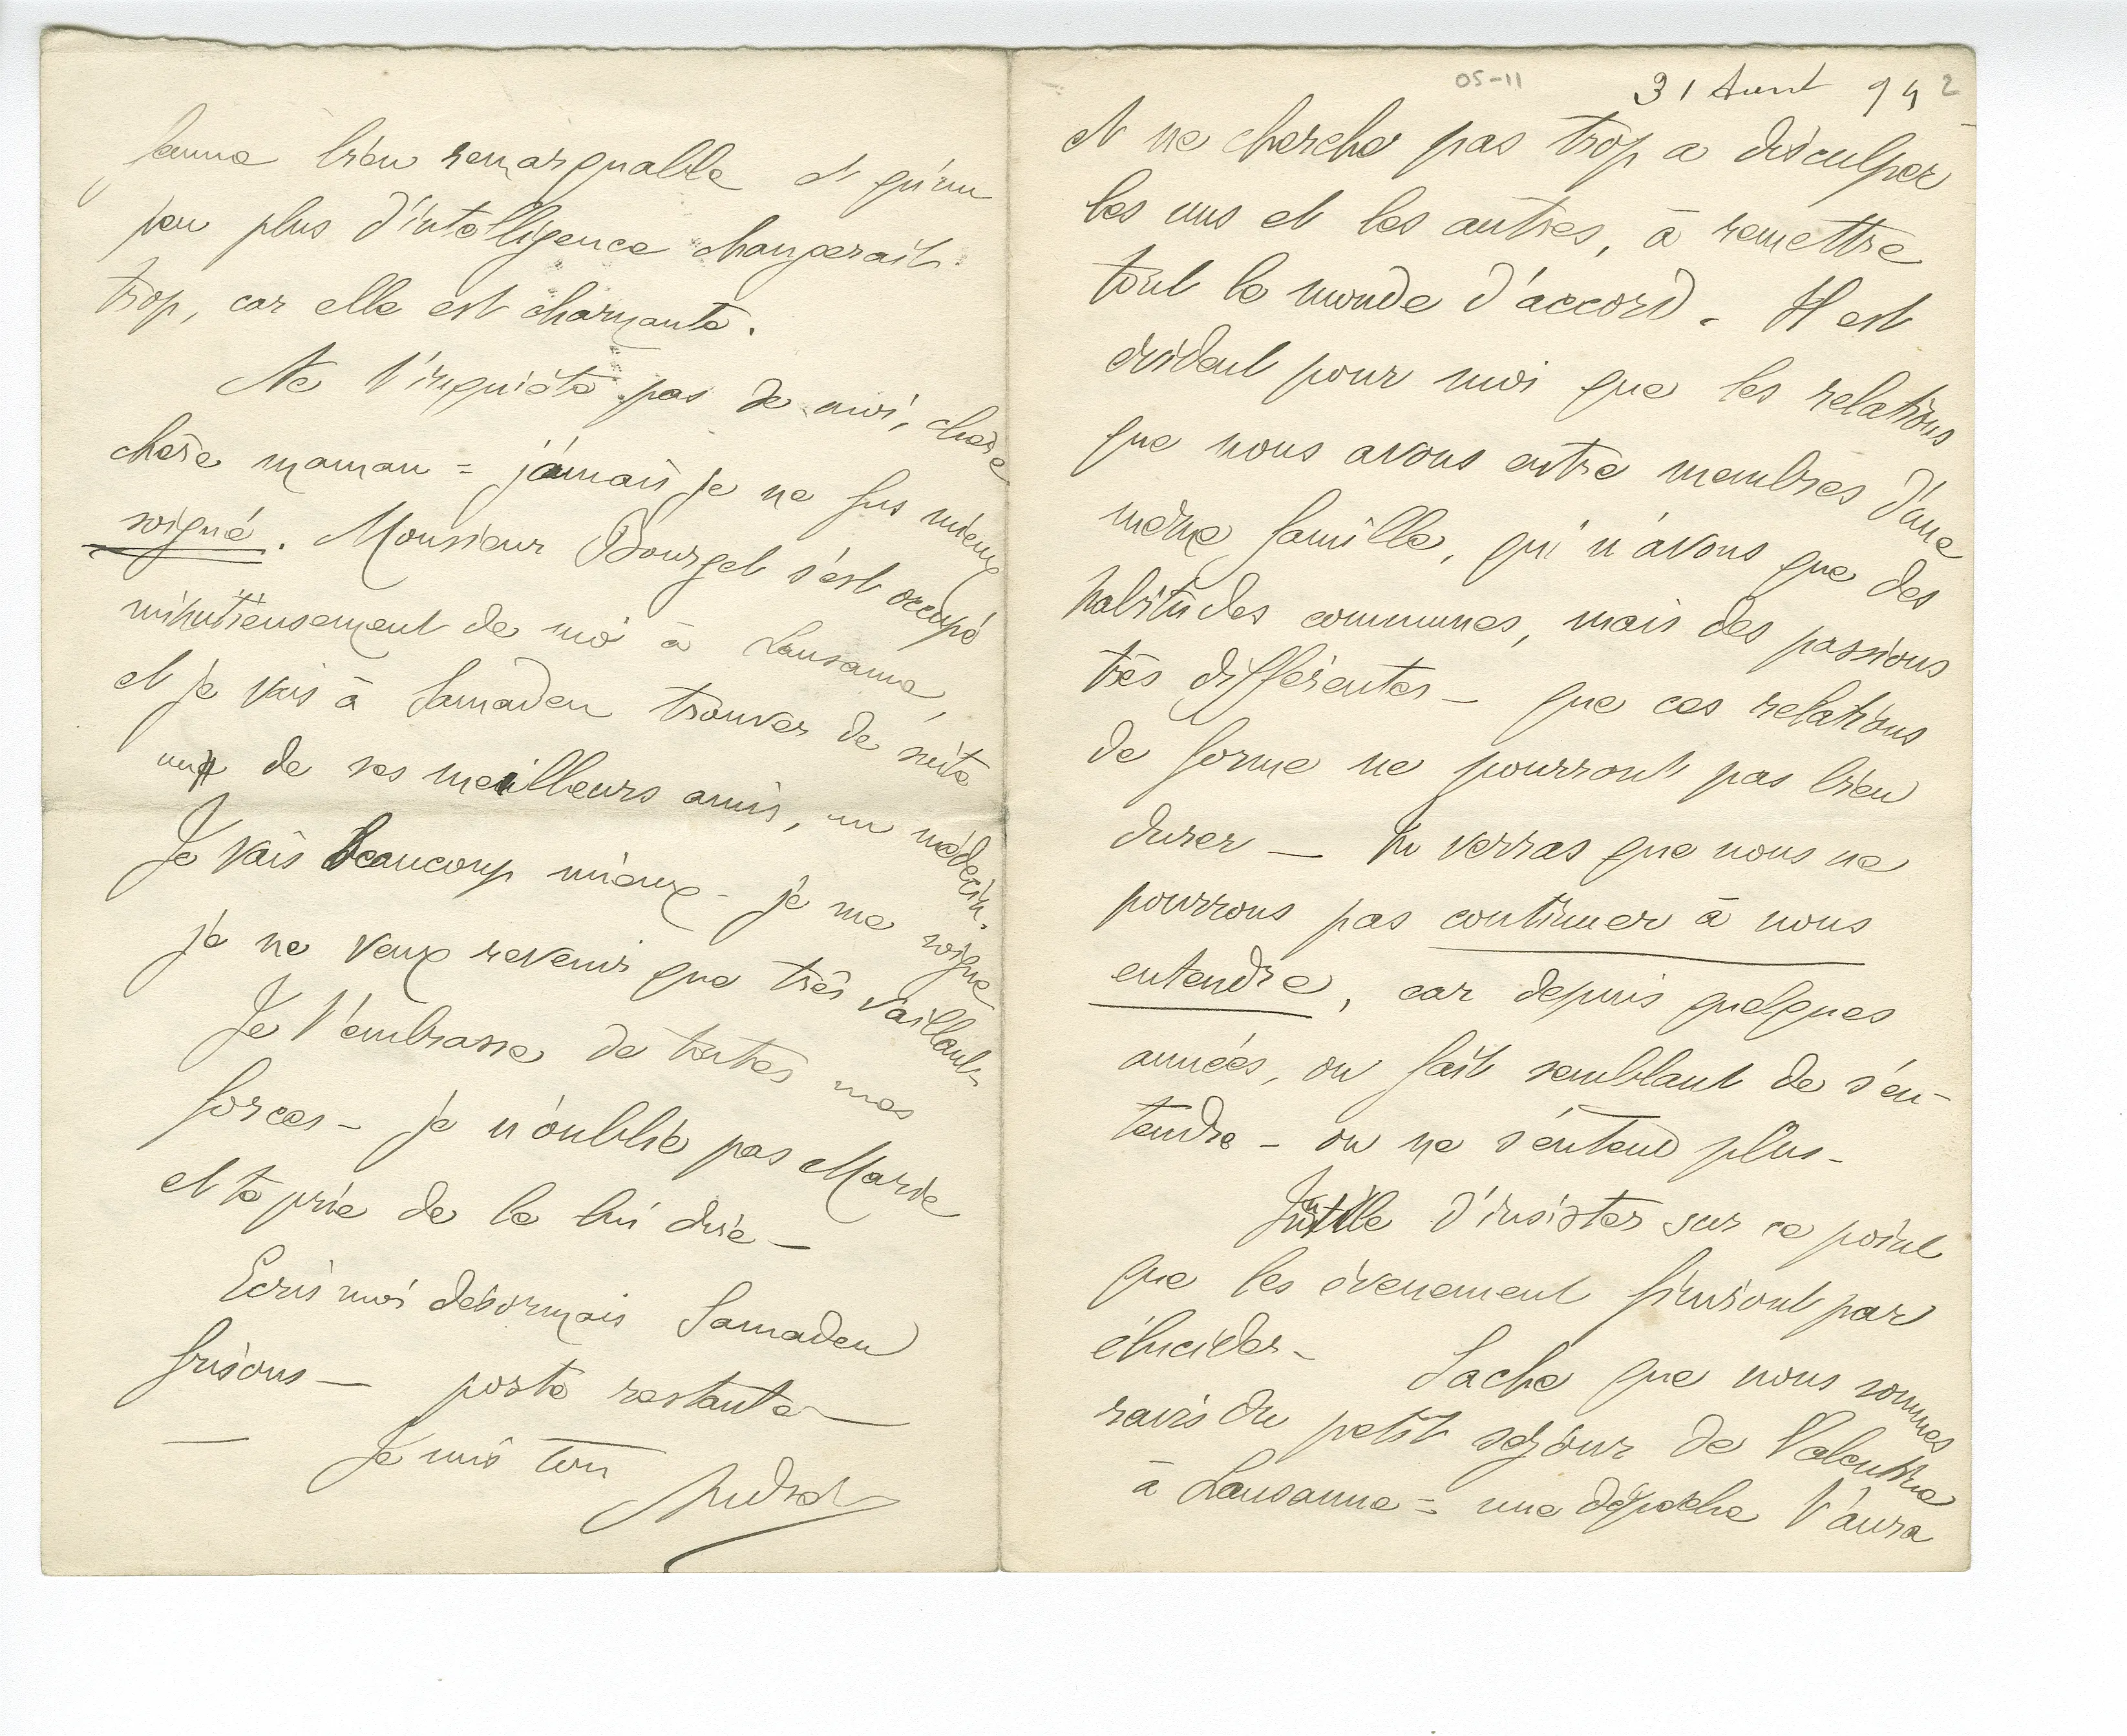 05-11
31 Aout 94
2
et ne cherche pas trop a disculper
les uns et les autres, à remettre
tout le monde d'accord. Il est
évident pour moi que les relations
que nous avons entre membres d'une
même famille, qui n'avons que des
habitudes communes, mais des passions
très différentes – que ces relations
de forme ne pourront pas bien
durer — tu verras que nous ne
pourrons pas continuer à nous
entendre, car depuis quelques
années, on fait semblant de s'en-
tendre – on ne s'entend plus –
Inutile d'insister sur ce point
que les évenement finiront par
élucider – Sache que nous sommes
ravis du petit séjour de Valentine
à Lausanne = une dépêche t'aura
femme bien remarquable et qu'un
peu plus d'intelligence changerait
trop, car elle est charmante.
Ne t'inquiète pas de moi, chère
chère maman = jamais je ne fus mieux
soigné. Monsieur Bourget s'est occupé
minutieusement de moi à Lausanne,
et je vais à Samaden trouver de suite
un de ses meilleurs amis, un médecin.
Je vais beaucoup mieux – je me soigne
je ne veux revenir que très vaillant –
Je t'embrasse de toutes mes
forces – je n'oublie pas Marie
et te prie de le lui dire –
Ecris moi désormais Samaden
Grisons — poste restante —
— Je suis ton
André